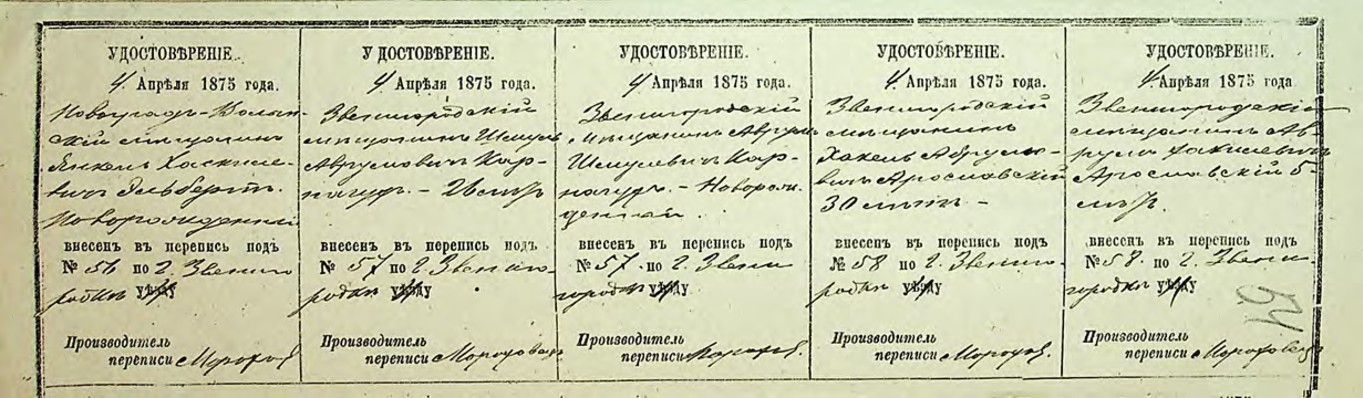 УДОСТОВѢРЕНІЕ.
4 Апрѣля 1875 года.
Новоградъ-Волын-
скій мѣщанинъ
Янкель Хаскеле-
вичъ Эльбертъ.
Новорожденный
внесенъ въ перепись подъ
№ 56 по г. Звени-
родкѣ уѣзду
Производитель
переписи
УДОСТОВѢРЕНІЕ.
4 Апрѣля 1875 года.
Звенигородскій
мѣщанинъ Шмуль
Аврумовичъ Кар-
- 26
внесенъ въ перепись подъ
№ 57 по г. Звениго-
родкѣ уѣзду
Производитель
переписи
УДОСТОВѢРЕНІЕ.
4 Апрѣля 1875 года.
Звенигородскій
мѣщанинъ Аврумъ
Шмулевичъ Кар-
- Новорож-
денный.
внесенъ въ перепись подъ
№ 57 по г. Звени
городкѣ уѣзду
Производитель
переписи
УДОСТОВѢРЕНІЕ.
4 Апрѣля 1875 года.
Звенигородскій
мѣщанинъ
Аврумо-
вичъ Ярославскій
30 лѣтъ -
внесенъ въ перепись подъ
№ 58 по г. Звениго-
родкѣ уѣзду
Производитель
переписи
УДОСТОВѢРЕНІЕ.
4 Апрѣля 1875 года
Звенигородскій
мѣщанинъ Ав-
румъ
Ярославскій 5-
внесенъ въ перепись подъ
№ 58 по г. Звени
городкѣ уѣзду
Производитель
переписи
54